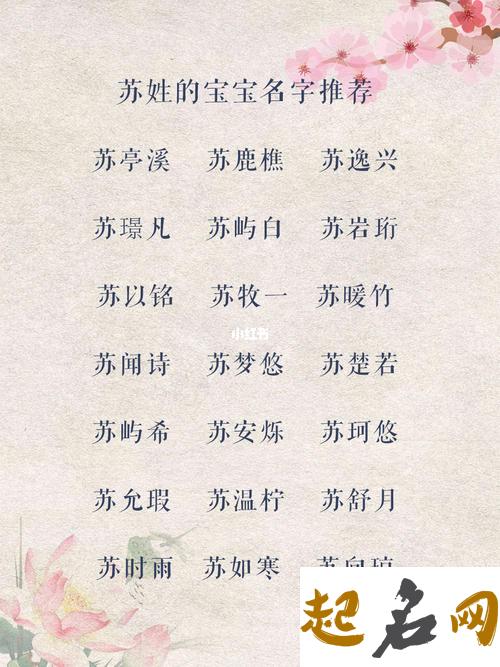 苏姓的宝宝名字推荐
苏亭溪 苏鹿樵 苏逸兴
苏璟凡 苏屿白 苏岩珩
苏以铭 苏牧一 苏暖竹
小红书
苏闻诗 苏梦悠 苏楚若
苏屿希 苏安烁 苏珂悠
苏允瑕 苏温柠 苏舒月
苏时雨 苏如寒
起名网